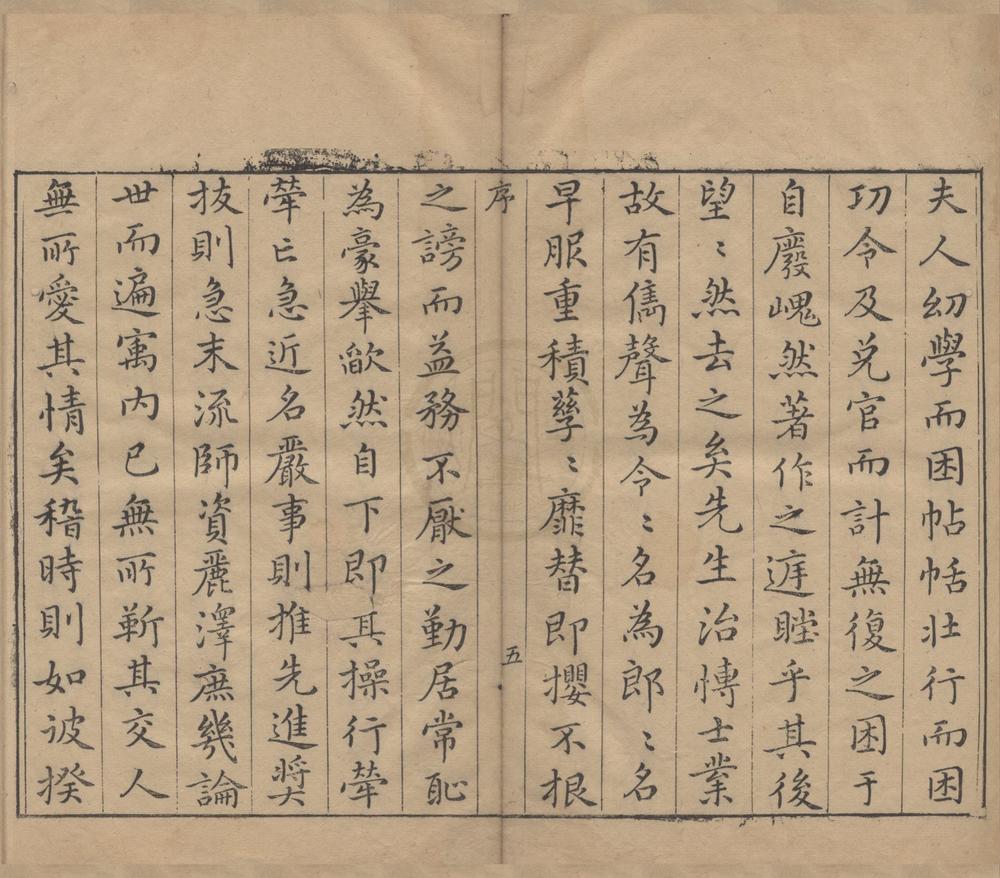 夫人幼學而困帖恬壯行而困
功令及兌官而計無復之困于
自廢嵬然著作之遅瞠乎其後
望〻然去之矣先生治博士業
故有儁聲為令〻名為郎〻名
早服重積孳〻靡替即攖不根
序
五
之謗而益務不厭之勤居常恥
為豪舉歉然自下即其操行犖
犖已急近名嚴事則推先進獎
拔則急末流師資麗澤庶幾論
世而遍寓內已無所靳其交人
無所愛其情矣稽時則如彼揆